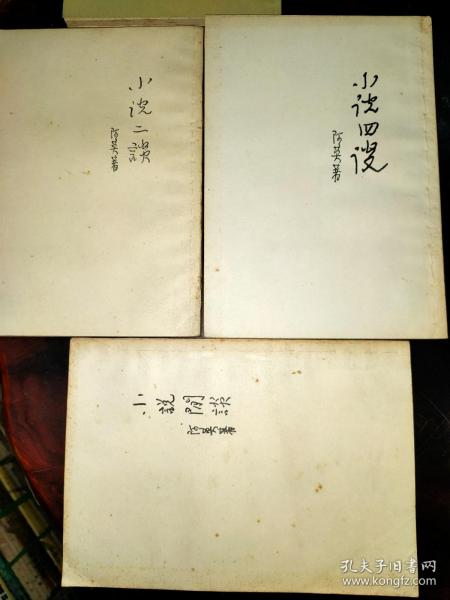 小说二談
阿英著
小说四谈
阿英著
小説閒談
阿英著
孔夫子旧书网
www.kongfz.com